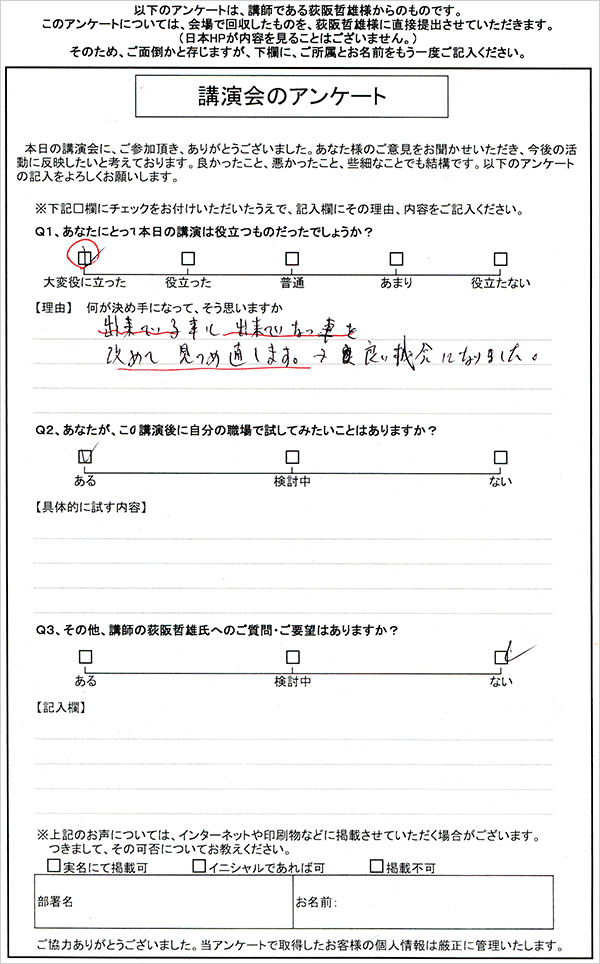 以下のアンケートは、講師である荻阪哲雄様からのものです。
このアンケートについては、会場で回収したものを、荻阪哲雄様に直接提出させていただきます。
（日本HPが内容を見ることはございません。）
そのため、ご面倒かと存じますが、下欄に、ご所属とお名前をもう一度ご記入ください。
講演会のアンケート
本日の講演会に、ご参加頂き、ありがとうございました。あなた様のご意見をお聞かせいただき、今後の活
動に反映したいと考えております。良かったこと、悪かったこと、些細なことでも結構です。以下のアンケート
の記入をよろしくお願いします。
※下記□欄にチェックをお付けいただいたうえで、記入欄にその理由、内容をご記入ください。
Q1、あなたにとって本日の講演は役立つものだったでしょうか？
大変役に立った 役立った 普通 あまり 役立たない
【理由】 何が決め手になって、そう思いますか
出来ている事と出来ていなっ事を
改めて見つめ直します。良い機会になりました。
Q2、あなたが、この講演後に自分の職場で試してみたいことはありますか？
ある 検討中 ない
【具体的に試す内容】
Q3、その他、講師の荻阪哲雄氏へのご質問・ご要望はありますか？
ある 検討中 ない
【記入欄】
※上記のお声については、インターネットや印刷物などに掲載させていただく場合がございます。
つきまして、その可否についてお教えください。
□実名にて掲載可 □イニシャルであれば可 □掲載不可
部署名 お名前:
ご協力ありがとうございました。当アンケートで取得したお客様の個人情報は厳正に管理いたします。